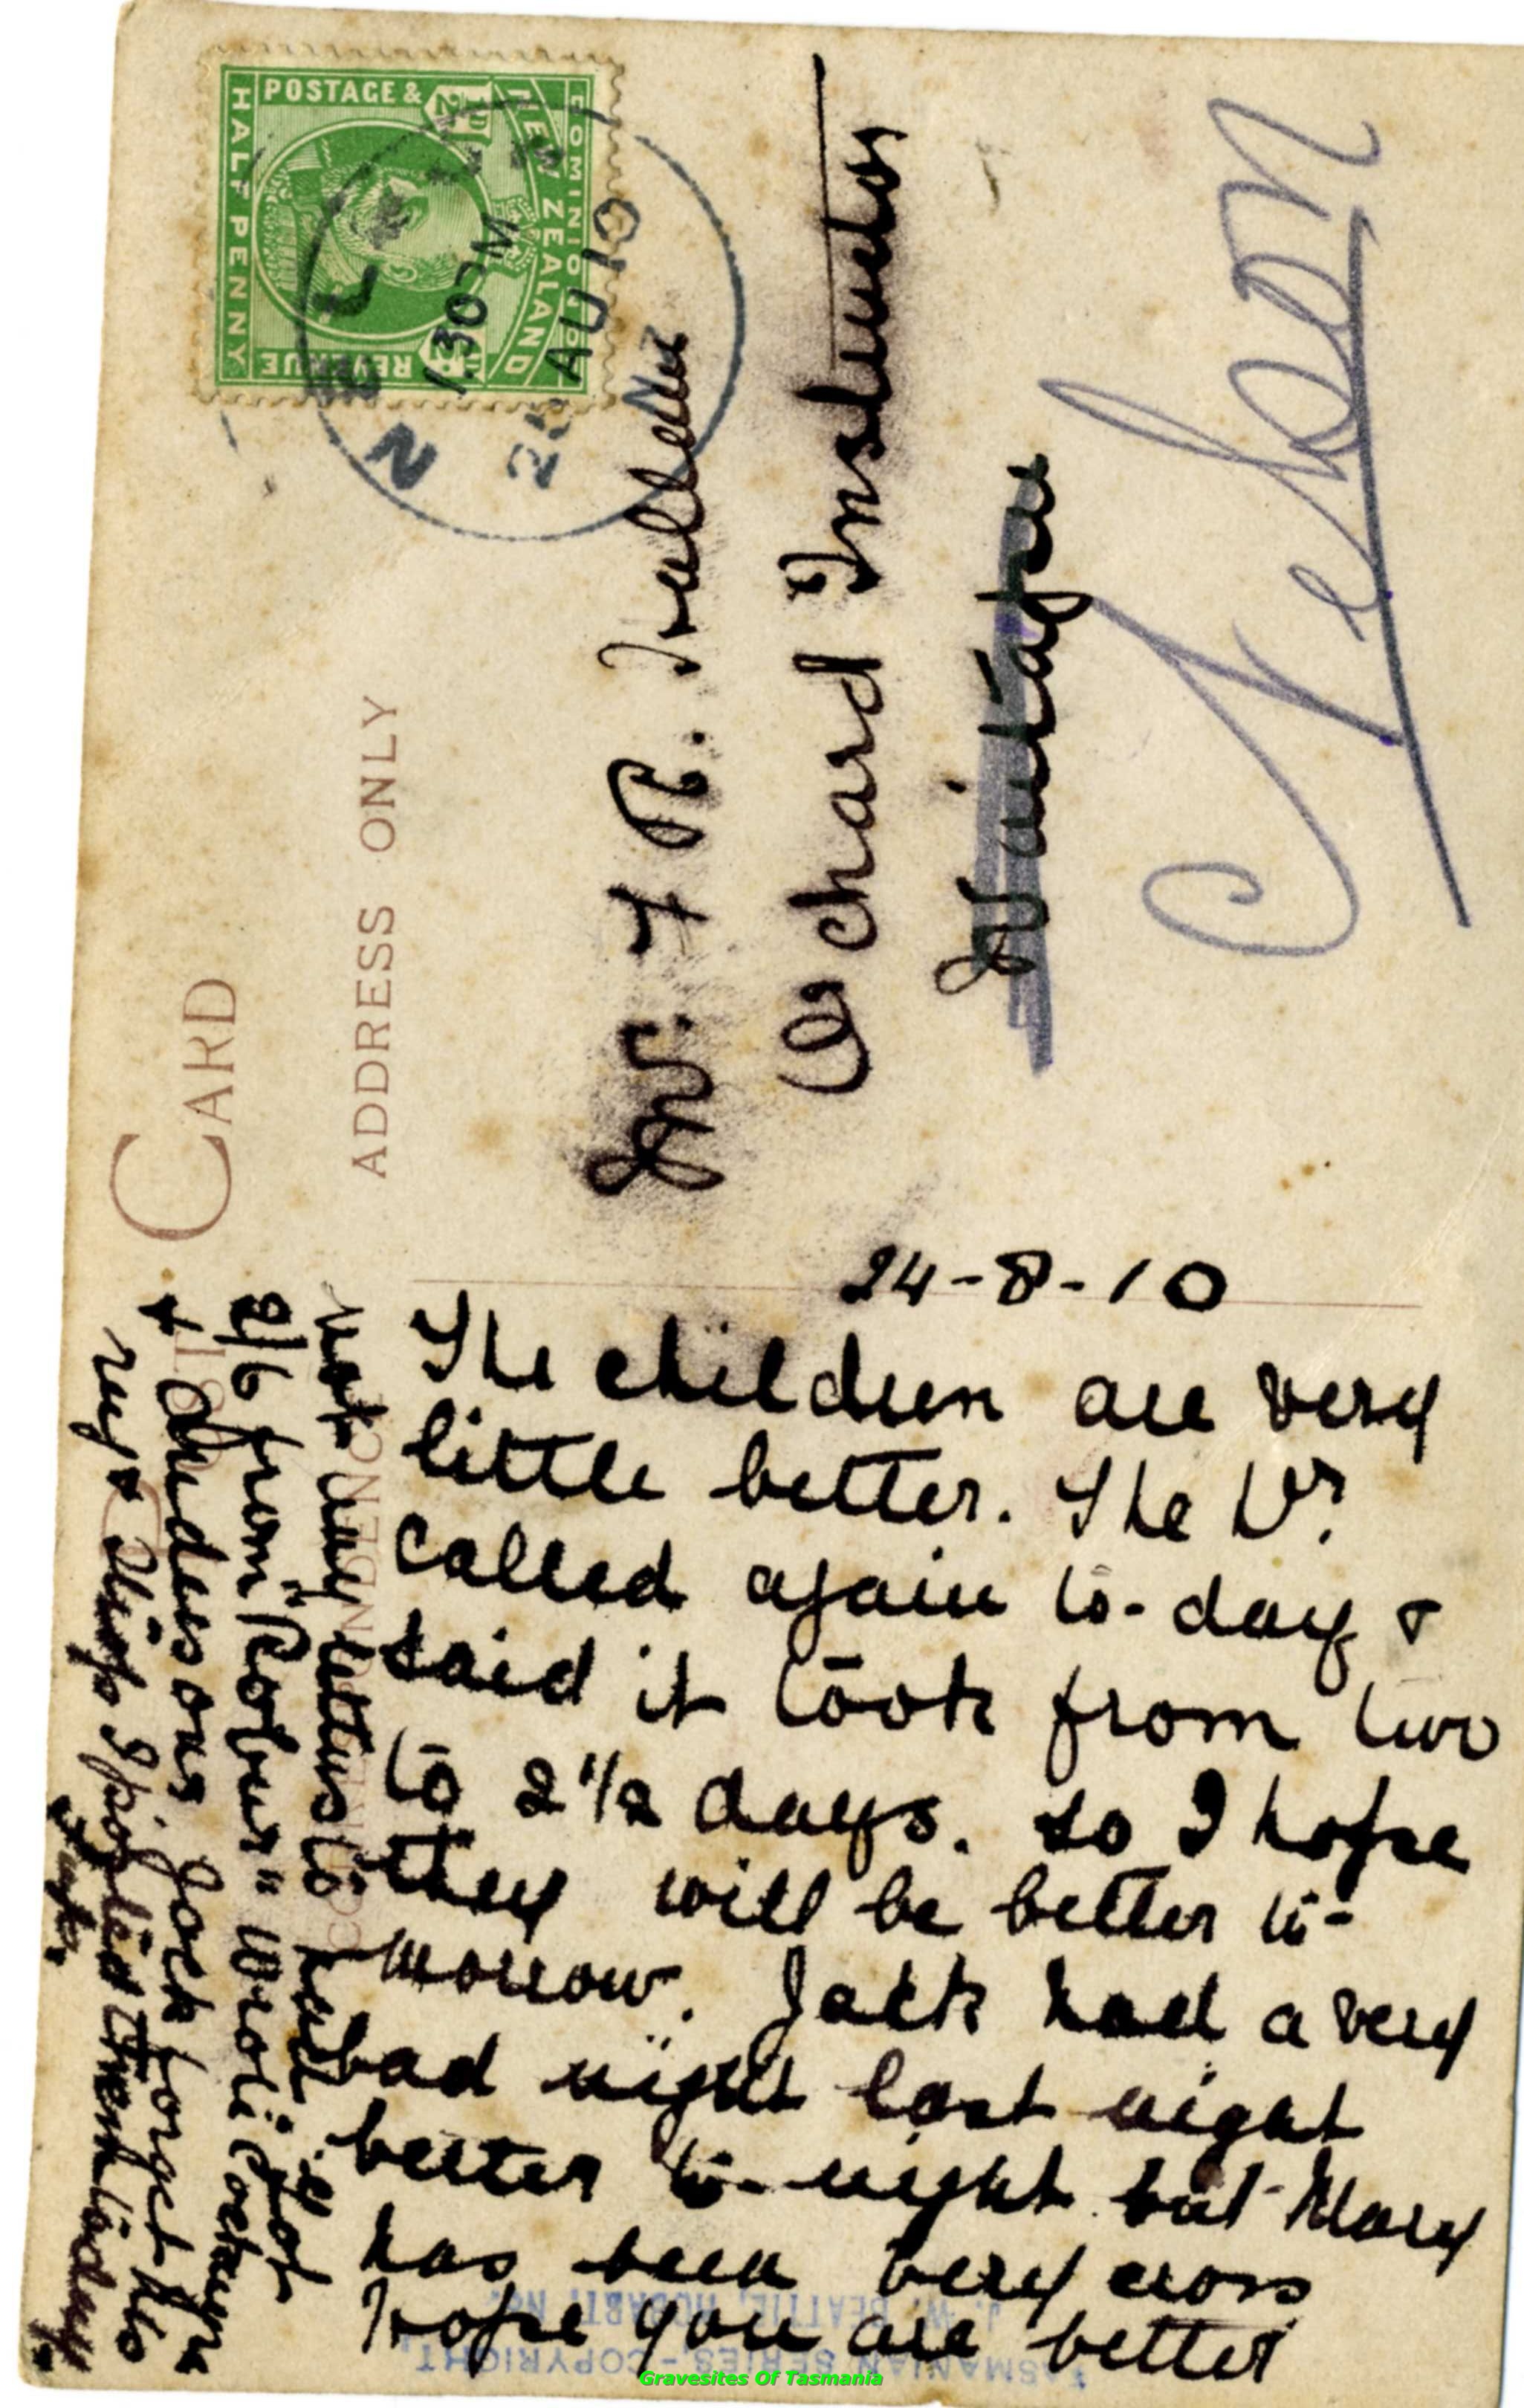 POST CARD
CORRESPONDENCE
ADDRESS ONLY
DOMINION OF
NEW ZEALAND
POSTAGE &
REVENUE
HALF PENNY
½D
½D
NEL
1.30 PM
AU 10
NZ
Orchard Instructor
Nelson
24-8-10
The children are very
little better. The Dr.
called again to-day &
said it took from two
to 2 1/2 days. so I hope
they will be better to-
morrow. Jack had a very
bad night last night
better to-night but Mary
has been very cross
Hope you are better
not any letters to hand
2/6 from "Robur" Wrote
& Andersons Jack forget his
rug & I posted them today
J. W. BEATTIE, HOBART, No.
TASMANIAN SERIES - COPYRIGHT
Gravesites Of Tasmania